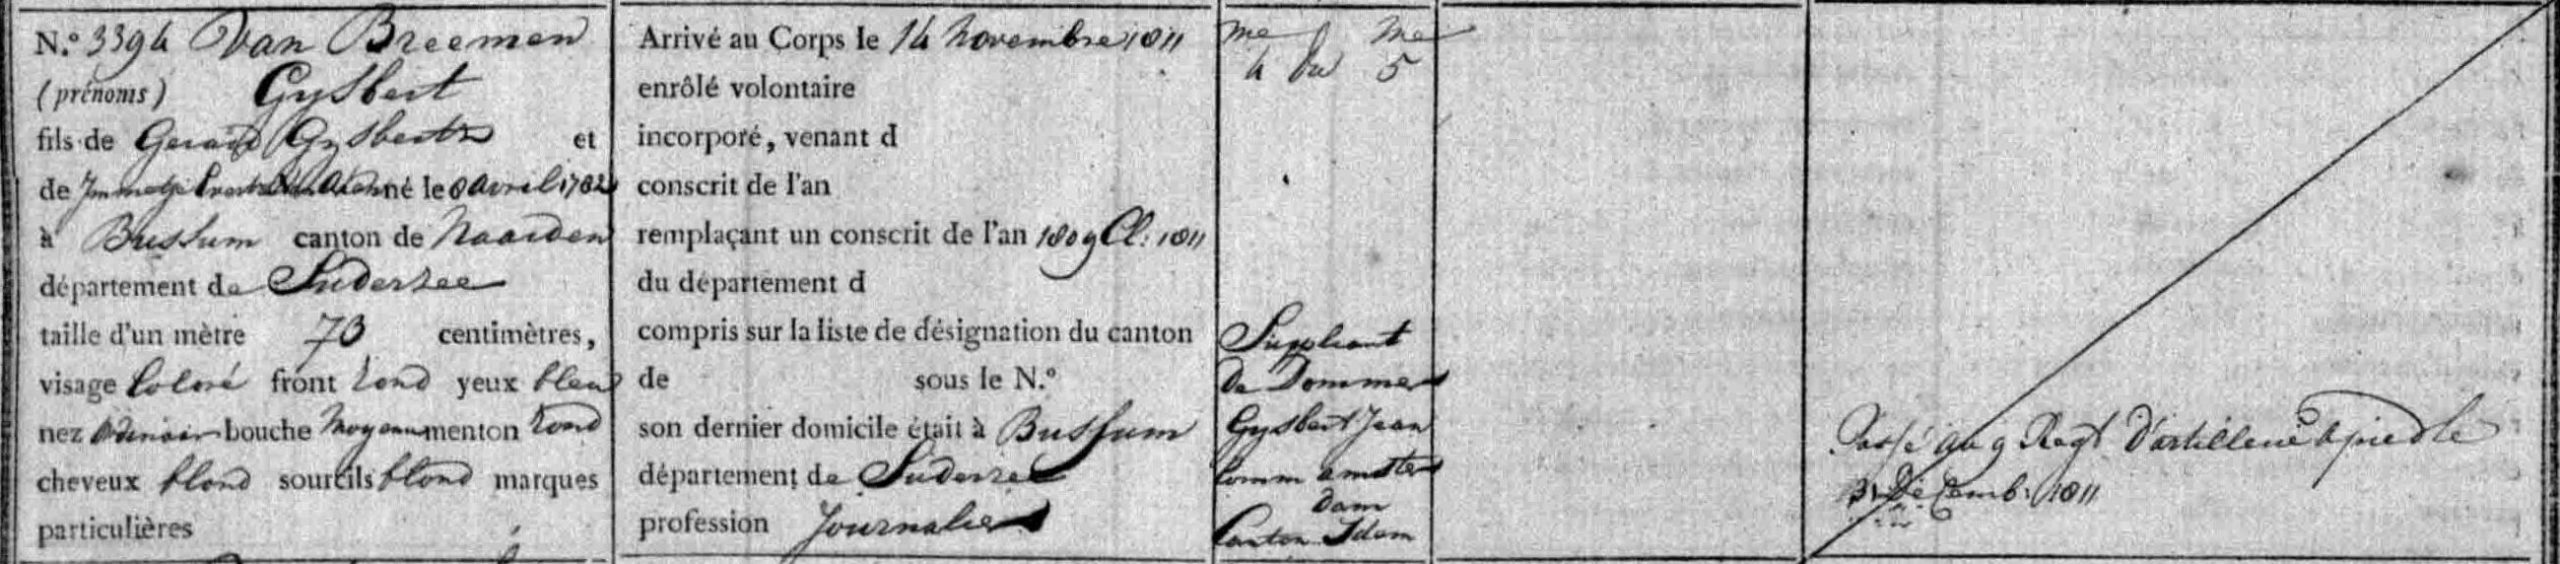 N.º 3394 Van Breemen
(prénoms) Gysbert
fils de Gerard Gysbertz et
de Jmmetje né le 8 avril 1782
à Bussum canton de Naarden
département de Suderzee
taille d'un mètre 70 centimètres,
visage Coloré front rond yeux bleu
nez ordinair bouche moyenne menton rond
cheveux blond sourcils blond marques
particulières
Arrivé au Corps le 14 novembre 1811
enrôlé volontaire
incorporé, venant d
conscrit de l'an
remplaçant un conscrit de l'an 1809 Cl: 1811
du département d
compris sur la liste de désignation du canton
de sous le N.º
son dernier domicile était à Bussum
département de Suderzee
profession Journalier
me me
4 du 5
Supleant
de Dommer
Gysbert Jean
Comm amster
dam
Canton Idem
Passé au 9 Regt D'artillerie a pied le
31 Decemb: 1811